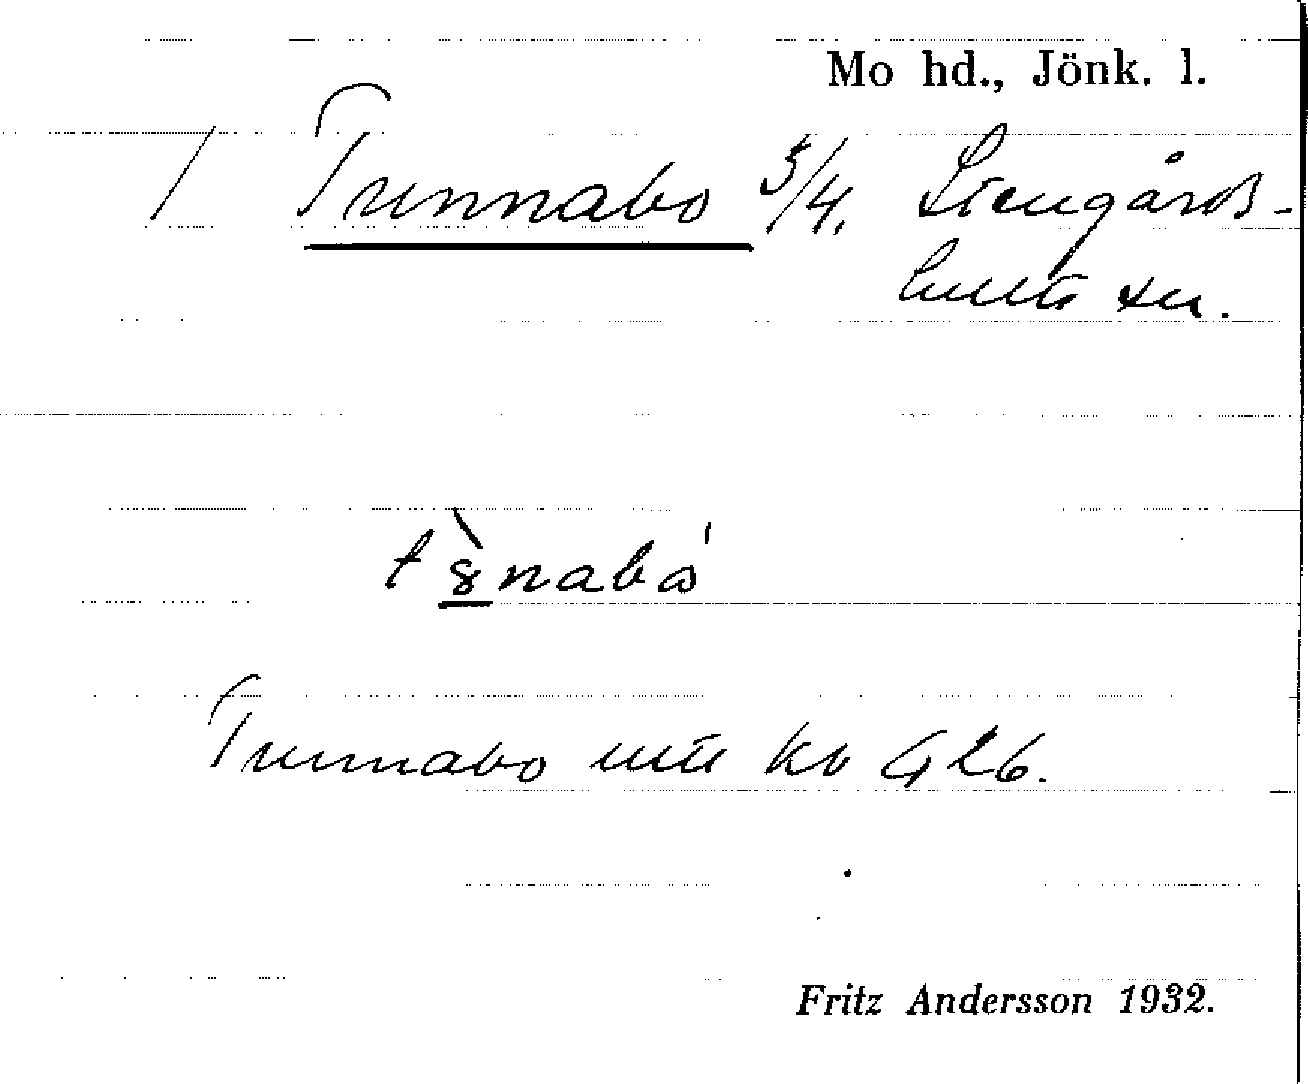 Mo hd., Jönk. l.
/ Tunnabo 3/4. Stengårds-
hults sn.
Tunnabo utt kb G 26.
Fritz Andersson 1932.